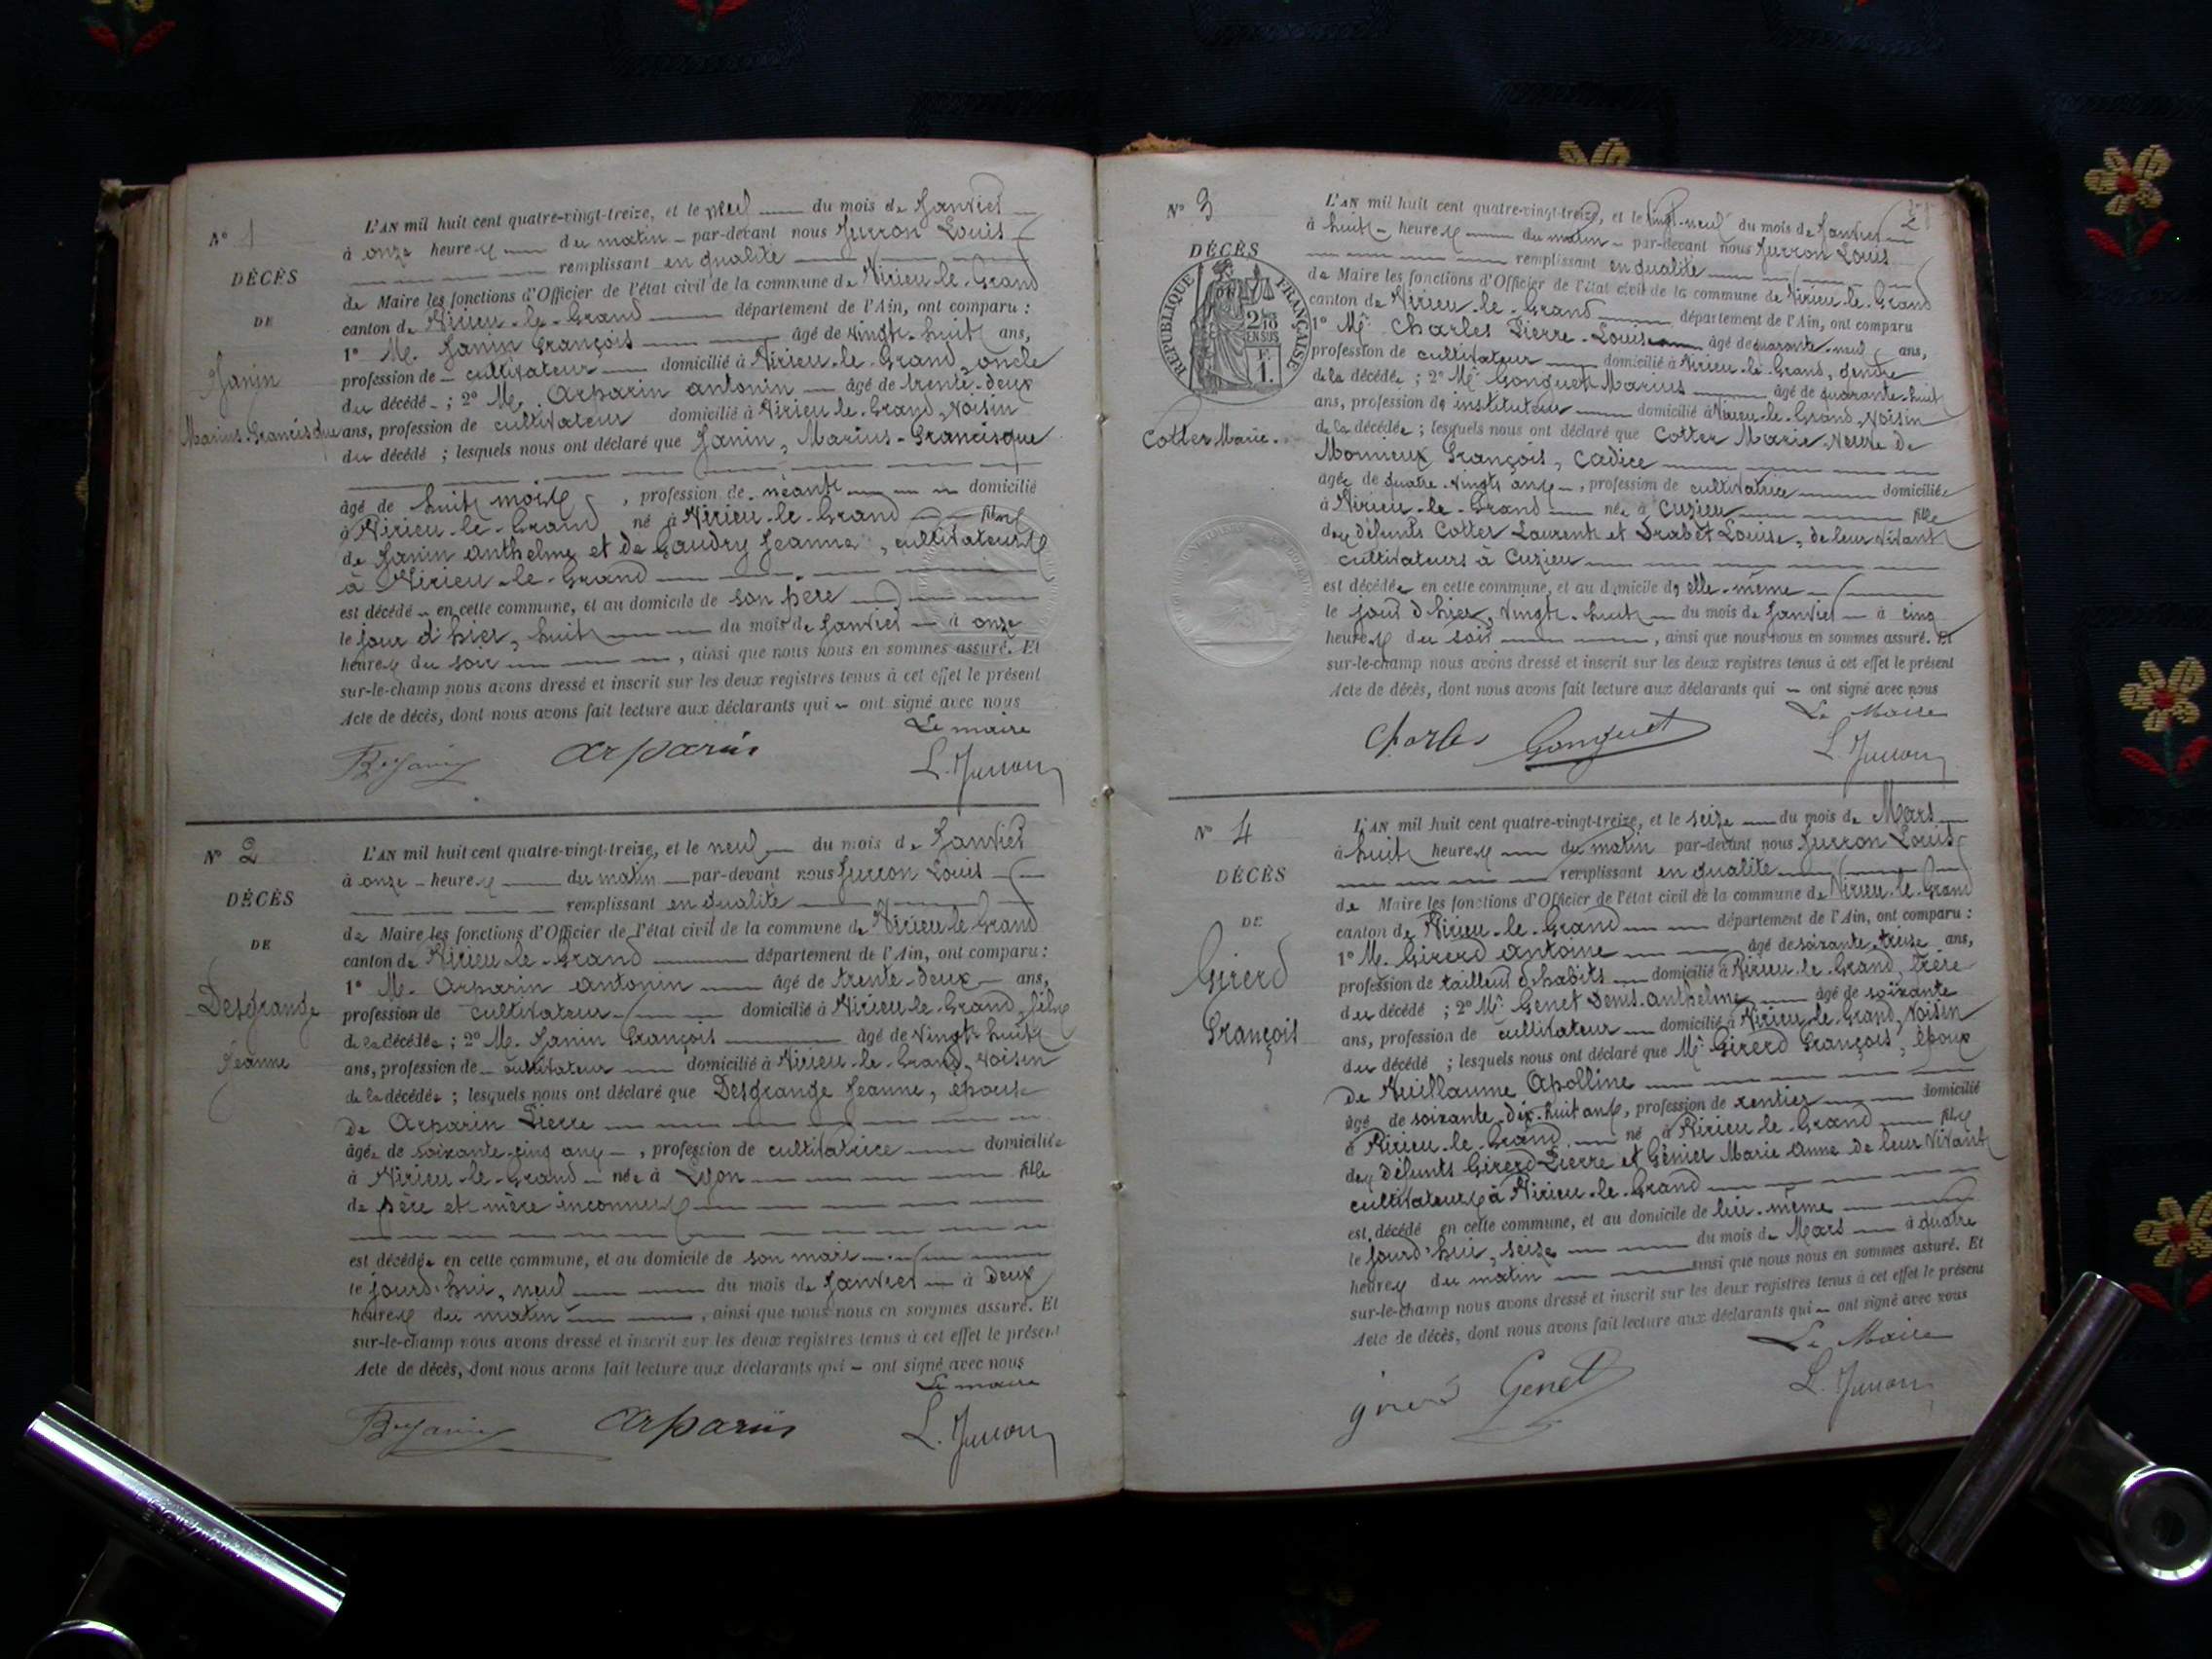 N° 1
DÉCÈS
DE
Janin
Marius-Francisque
L'AN mil huit cent quatre-vingt-treize, et le neuf du mois de Janvier
à onze heures du matin par-devant nous Juron Louis
remplissant en qualité
de Maire les fonctions d'Officier de l'état civil de la commune de Virieu-le-Grand
canton de Virieu-le-Grand département de l'Ain, ont comparu :
1° M. Janin François âgé de vingt-huit ans,
profession de cultivateur domicilié à Virieu-le-Grand, oncle
du décédé ; 2° M. Arparin Antonin âgé de trente-deux
ans, profession de cultivateur domicilié à Virieu-le-Grand, voisin
du décédé ; lesquels nous ont déclaré que Janin, Marius-Francisque
âgé de huit mois, profession de néant domicilié
à Virieu-le-Grand né à Virieu-le-Grand fils
de Janin Anthelme et de Gaudry Jeanne, cultivateurs
à Virieu-le-Grand
est décédé en cette commune, et au domicile de son père
le jour d'hier, huit du mois de Janvier à onze
heures du soir, ainsi que nous nous en sommes assuré. Et
sur-le-champ nous avons dressé et inscrit sur les deux registres tenus à cet effet le présent
Acte de décès, dont nous avons fait lecture aux déclarants qui ont signé avec nous
Le maire
Arparin L. Juron
N° 2
DÉCÈS
DE
Desgrange
Jeanne
L'AN mil huit cent quatre-vingt-treize, et le neuf du mois de Janvier
à onze heures du matin par-devant nous Juron Louis
remplissant en qualité
de Maire les fonctions d'Officier de l'état civil de la commune de Virieu-le-Grand
canton de Virieu-le-Grand département de l'Ain, ont comparu :
1° M. Arparin Antonin âgé de trente-deux ans,
profession de cultivateur domicilié à Virieu-le-Grand, fils
de la décédée ; 2° M. Janin François âgé de vingt-huit
ans, profession de cultivateur domicilié à Virieu-le-Grand, voisin
de la décédée ; lesquels nous ont déclaré que Desgrange Jeanne, épouse
de Arparin Pierre
âgée de soixante-cinq ans, profession de cultivatrice domiciliée
à Virieu-le-Grand née à Lyon fille
de père et mère inconnus
est décédée en cette commune, et au domicile de son mari
le jourd'hui, neuf du mois de Janvier à deux
heures du matin, ainsi que nous nous en sommes assuré. Et
sur-le-champ nous avons dressé et inscrit sur les deux registres tenus à cet effet le présent
Acte de décès, dont nous avons fait lecture aux déclarants qui ont signé avec nous
Le maire
Arparin L. Juron
N° 3
DÉCÈS
RÉPUBLIQUE FRANÇAISE
Cotter Marie.
L'AN mil huit cent quatre-vingt-treize, et le vingt-neuf du mois de Janvier
à huit heures du matin par-devant nous Juron Louis
remplissant en qualité
de Maire les fonctions d'Officier de l'état civil de la commune de Virieu-le-Grand
canton de Virieu-le-Grand département de l'Ain, ont comparu
1° Mr Charles Pierre-Louis âgé de quarante-neuf ans,
profession de cultivateur domicilié à Virieu-le-Grand, gendre
de la décédée ; 2° Mr Gonguet Marius âgé de quarante-huit
ans, profession de instituteur domicilié à Virieu-le-Grand, voisin
de la décédée ; lesquels nous ont déclaré que Cotter Marie, veuve de
Monnieux François, Cadice
âgée de quatre-vingts ans, profession de cultivatrice domiciliée
à Virieu-le-Grand née à Cuzieu fille
des défunts Cotter Laurent et Drabet Louise, de leur vivant
cultivateurs à Cuzieu
est décédée en cette commune, et au domicile de elle-même
le jour d'hier, vingt-huit du mois de Janvier à cinq
heures du soir, ainsi que nous nous en sommes assuré. Et
sur-le-champ nous avons dressé et inscrit sur les deux registres tenus à cet effet le présent
Acte de décès, dont nous avons fait lecture aux déclarants qui ont signé avec nous
Le Maire
Charles Gonguet L. Juron
N° 4
DÉCÈS
DE
Girerd
François
L'AN mil huit cent quatre-vingt-treize, et le seize du mois de Mars
à huit heures du matin par-devant nous Juron Louis
remplissant en qualité
de Maire les fonctions d'Officier de l'état civil de la commune de Virieu-le-Grand
canton de Virieu-le-Grand département de l'Ain, ont comparu :
1° M. Girerd Antoine âgé de soixante-treize ans,
profession de tailleur d'habits domicilié à Virieu-le-Grand, frère
du décédé ; 2° Mr Genet Denis-Anthelme âgé de soixante
ans, profession de cultivateur domicilié à Virieu-le-Grand, voisin
du décédé ; lesquels nous ont déclaré que Mr Girerd François, époux
de Vuillaume Apolline
âgé de soixante-dix-huit ans, profession de rentier domicilié
à Virieu-le-Grand né à Virieu-le-Grand fils
des défunts Girerd Pierre et Génier Marie Anne de leur vivant
cultivateurs à Virieu-le-Grand
est décédé en cette commune, et au domicile de lui-même
le jourd'hui, seize du mois de Mars à quatre
heures du matin ainsi que nous nous en sommes assuré. Et
sur-le-champ nous avons dressé et inscrit sur les deux registres tenus à cet effet le présent
Acte de décès, dont nous avons fait lecture aux déclarants qui ont signé avec nous
Le Maire
girerd Genet L. Juron